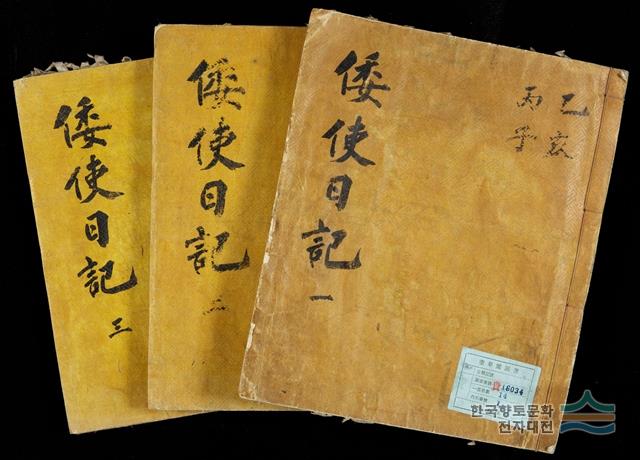 倭使日記 三
倭使日記 二
倭使日記 一
乙亥
丙子
奎章閣圖書
16034
14
한국향토문화
전자대전